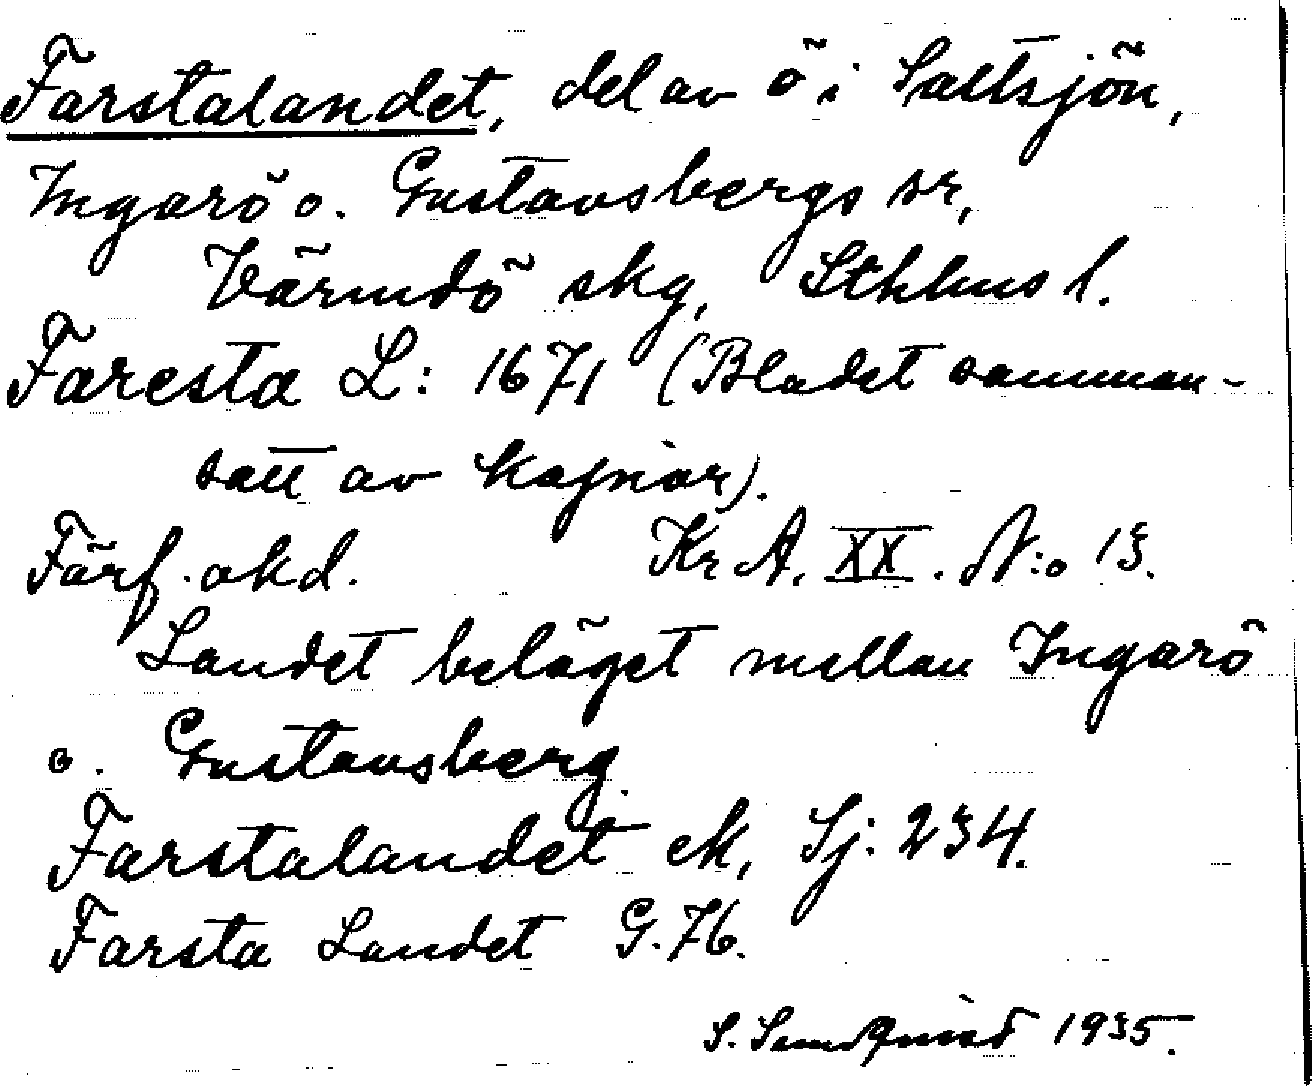 Farstalandet, del av ö i Saltsjön,
Ingarö o. Gustavsbergs sr,
Värmdö skg, Sthlms l.
Faresta L: 1671 (Bladet samman-
satt av kopior).
Förf. okd. Kr A. XX. N:o 13.
Landet beläget mellan Ingarö
o. Gustavsberg.
Farstalandet ek, Sj: 234.
Farsta Landet G. 76.
S. 1935.